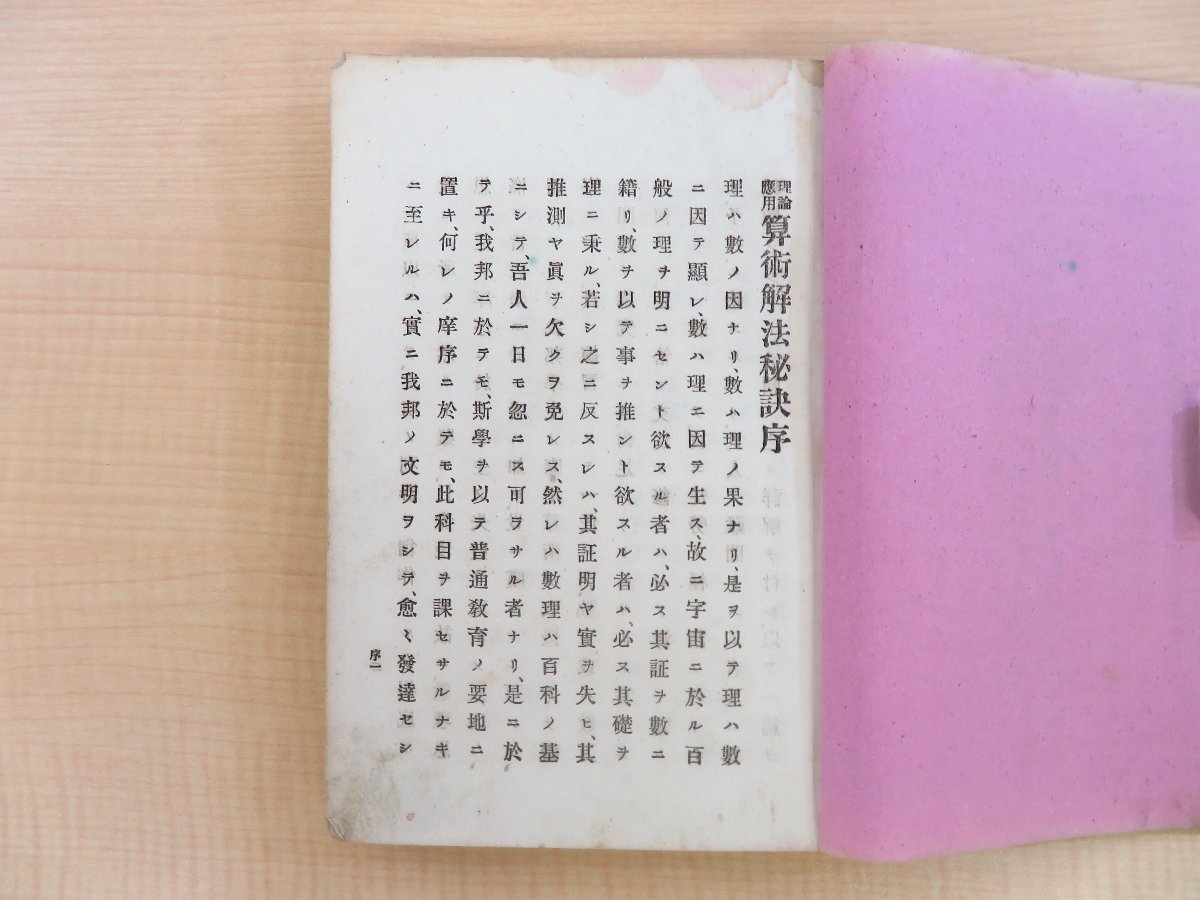 理論應用算術解法秘訣序
理ハ數ノ因ナリ、數ハ理ノ果ナリ、是ヲ以テ理ハ數
ニ因テ顯レ、數ハ理ニ因テ生ス、故ニ宇宙ニ於ル百
般ノ理ヲ明ニセント欲スル者ハ、必ス其証ヲ數ニ
籍リ、數ヲ以テ事ヲ推シント欲スル者ハ、必ス其礎ヲ
理ニ秉ル、若シ之ニ反スレハ、其証明ヤ實ヲ失ヒ、其
推測ヤ眞ヲ欠クヲ免レス、然レハ數理ハ百科ノ基
ニシテ、吾人一日モ忽ニス可ラサル者ナリ、是ニ於
テ乎、我邦ニ於テモ、斯學ヲ以テ普通敎育ノ要地ニ
置キ、何レノ庠序ニ於テモ、此科目ヲ課セサルナキ
ニ至レルハ、實ニ我邦ノ文明ヲシテ、愈〻發達セシ
序一